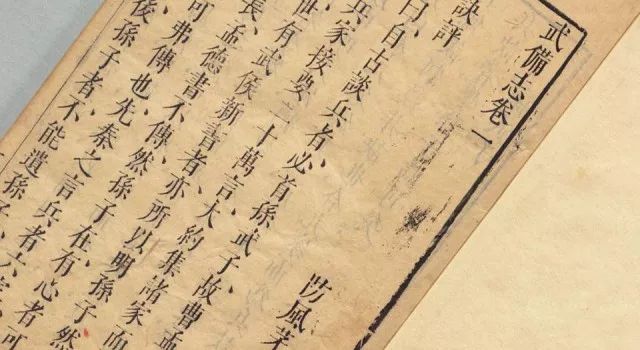 武備志卷一
防風茅
訣評
曰、自古談兵者、必首孫武子、故曹孟
兵家接要二十萬言、大約集諸家而
世有武侯新書者、亦所以明孫子、然
長、孟德書不傳、然孫子在、有心者可
可弗傳也、先秦之言兵者六家
後孫子者、不能遺孫子、